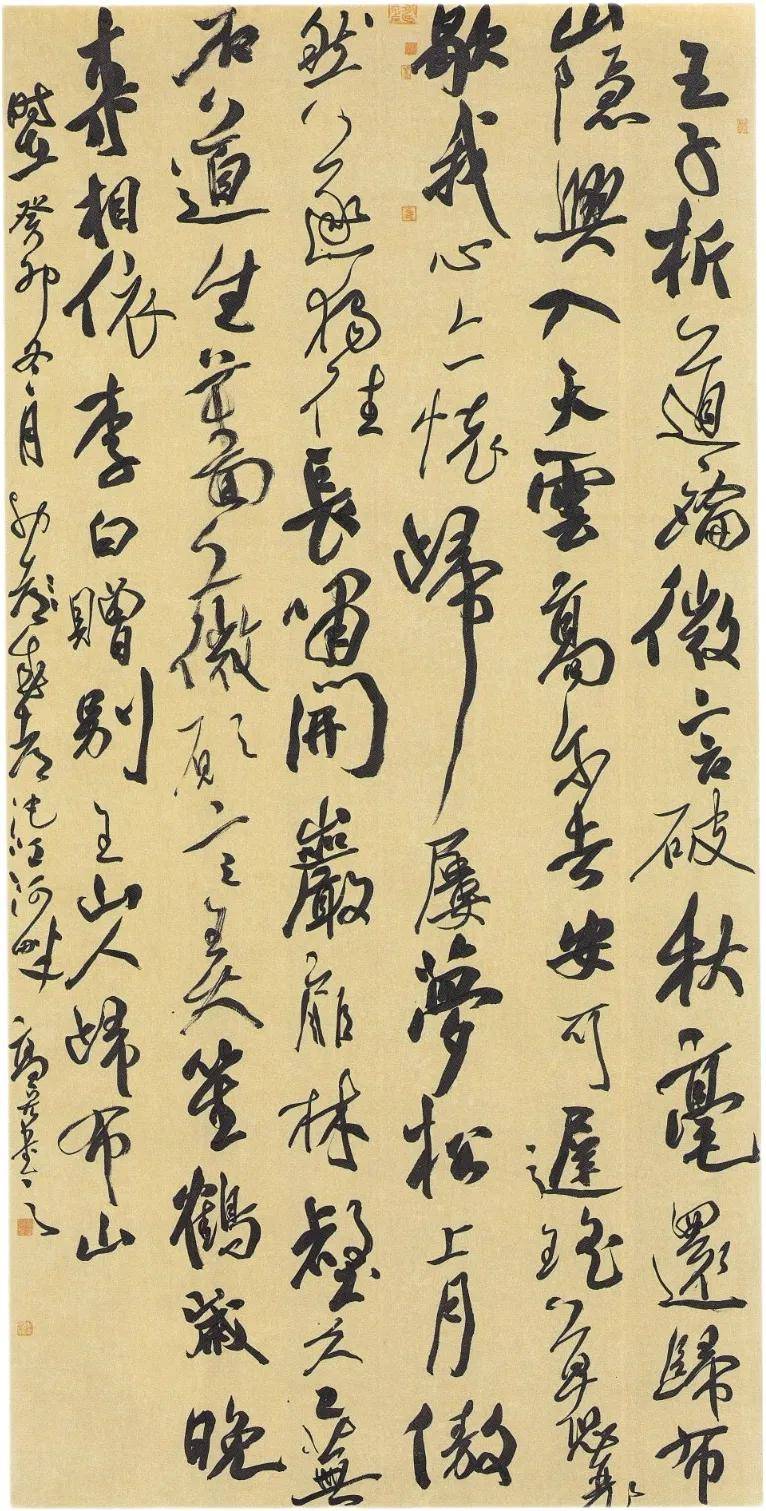 王子析道論微言破秋毫還歸布
山隱興入天雲高爾去安可遲瑤草恐衰
歇我心亦懷歸屢夢松上月傲
然遂獨往長嘯開巖扉林壑久已蕪
石道生薔薇願言弄笙鶴歲晚
來相依李白贈別王山人歸布山
時在癸卯冬月沱江河畔高書之